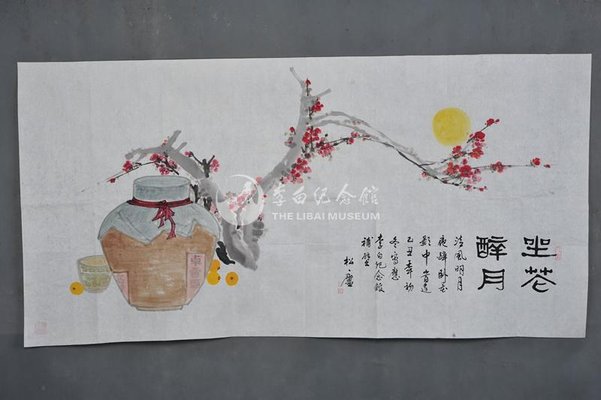 坐花
醉月
清风明月
夜醉卧花
影中当逢
己丑年初
冬写应
李白纪念馆
补壁
松
李白纪念馆
THE LIBAI MUSEUM